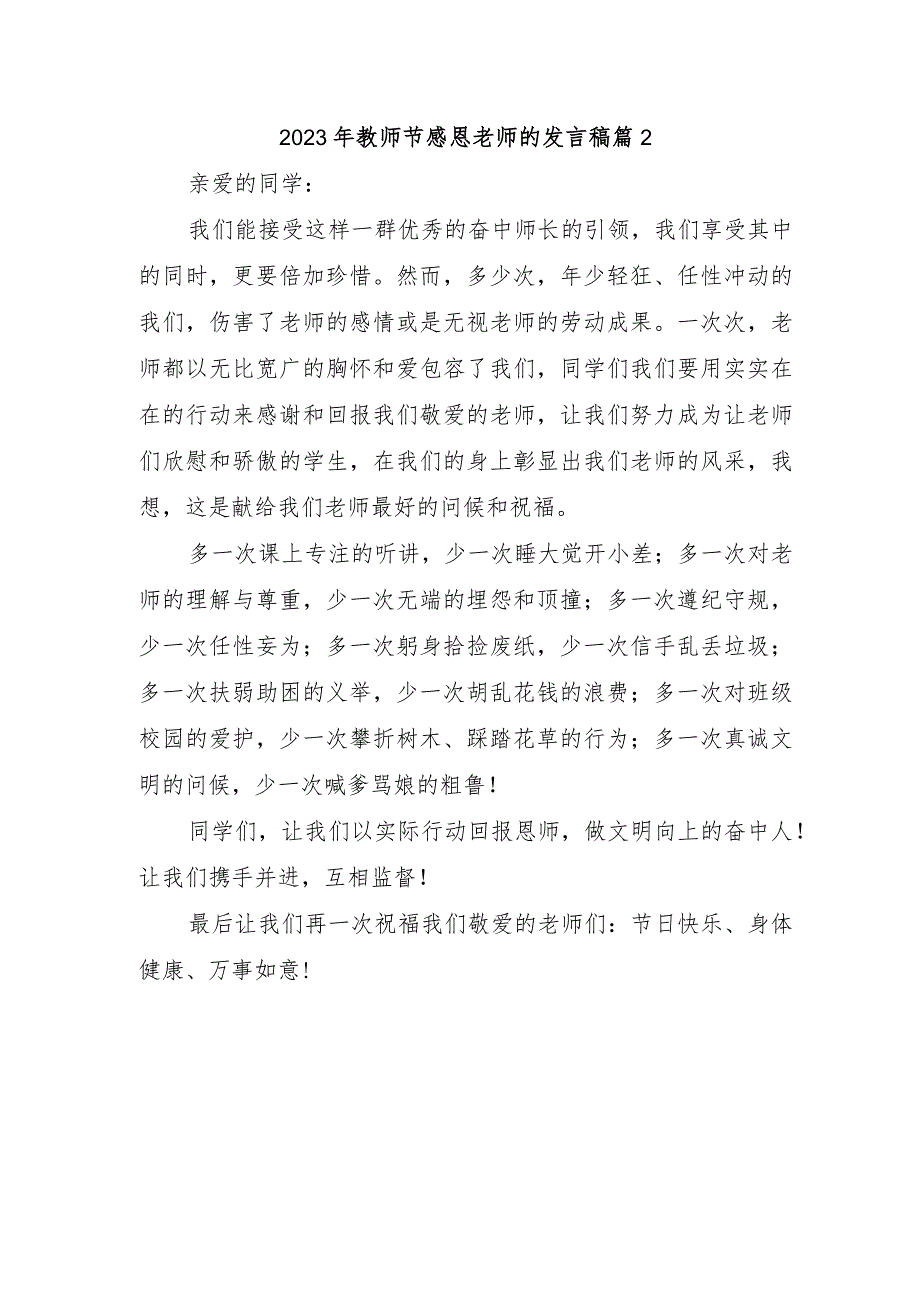 2023年教师节感恩老师的发言稿篇2
亲爱的同学：
我们能接受这样一群优秀的奋中师长的引领，我们享受其中
的同时，更要倍加珍惜。然而，多少次，年少轻狂、任性冲动的
我们，伤害了老师的感情或是无视老师的劳动成果。一次次，老
师都以无比宽广的胸怀和爱包容了我们，同学们我们要用实实在
在的行动来感谢和回报我们敬爱的老师，让我们努力成为让老师
们欣慰和骄傲的学生，在我们的身上彰显出我们老师的风采，我
想，这是献给我们老师最好的问候和祝福。
多一次课上专注的听讲，少一次睡大觉开小差；多一次对老
师的理解与尊重，少一次无端的埋怨和顶撞；多一次遵纪守规，
少一次任性妄为；多一次躬身拾捡废纸，少一次信手乱丢垃圾；
多一次扶弱助困的义举，少一次胡乱花钱的浪费；多一次对班级
校园的爱护，少一次攀折树木、踩踏花草的行为；多一次真诚文
明的问候，少一次喊爹骂娘的粗鲁！
同学们，让我们以实际行动回报恩师，做文明向上的奋中人！
让我们携手并进，互相监督！
最后让我们再一次祝福我们敬爱的老师们：节日快乐、身体
健康、万事如意!